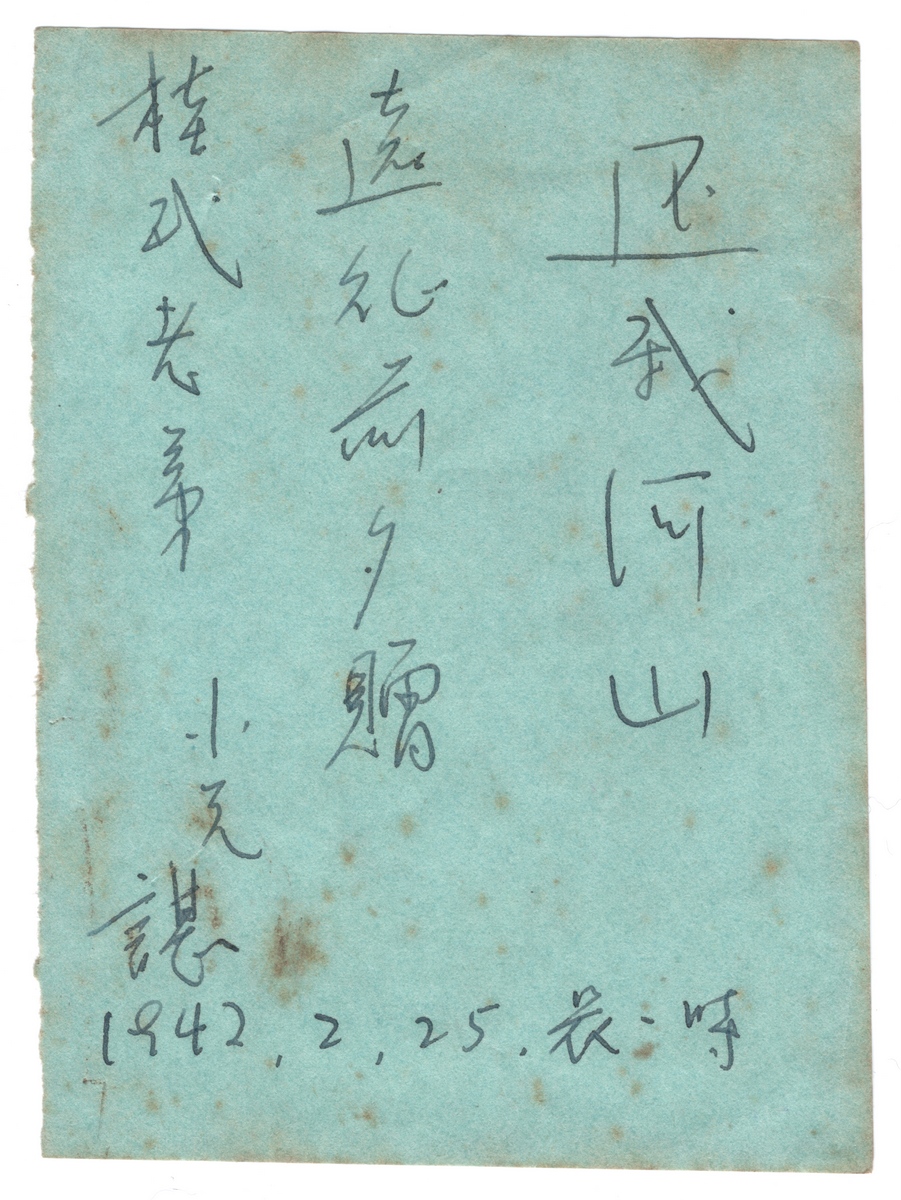 還我河山
遠征前夕贈
桂武老弟
小兄
諶
1942,2,25.晨二時